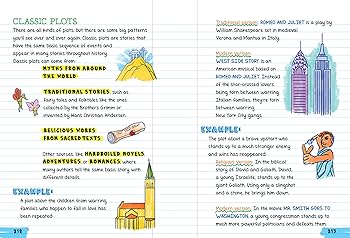 CLASSIC PLOTS
There are all kinds of plots, but there are some big patterns
you'll see over and over again. Classic plots are stories that
have the same basic sequence of events and
appear in many stories throughout history.
Classic plots can come from:
MYTHS FROM AROUND
THE WORLD
TRADITIONAL STORIES, such as
fairy tales and folktales like the ones
collected by the Brothers Grimm or
invented by Hans Christian Andersen
RELIGIOUS WORKS
FROM SACRED TEXTS
Other sources, like HARDBOILED NOVELS,
ADVENTURES, or ROMANCES, where
many authors tell the same basic story with
different details.
EXAMPLE:
A plot about the children from warring
families who happen to fall in love has
been repeated:
312
Traditional version: ROMEO AND JULIET is a play by
William Shakespeare set in medieval
Verona and Mantua in Italy.
Modern version:
WEST SIDE STORY is an
American musical based on
ROMEO AND JULIET. Instead
of the star-crossed lovers
being torn between warring
Italian families, they're torn
between warring
New York City gangs.
EXAMPLE:
The plot about a brave upstart who
stands up to a much stronger enemy
and wins has reappeared:
Religious version: In the biblical
story of David and Goliath, David,
a young Israelite, stands up to the
giant Goliath. Using only a slingshot
and a stone, he brings him down.
Modern version: In the movie MR. SMITH GOES TO
WASHINGTON, a young congressman stands up to
much more powerful politicians and defeats them.
313